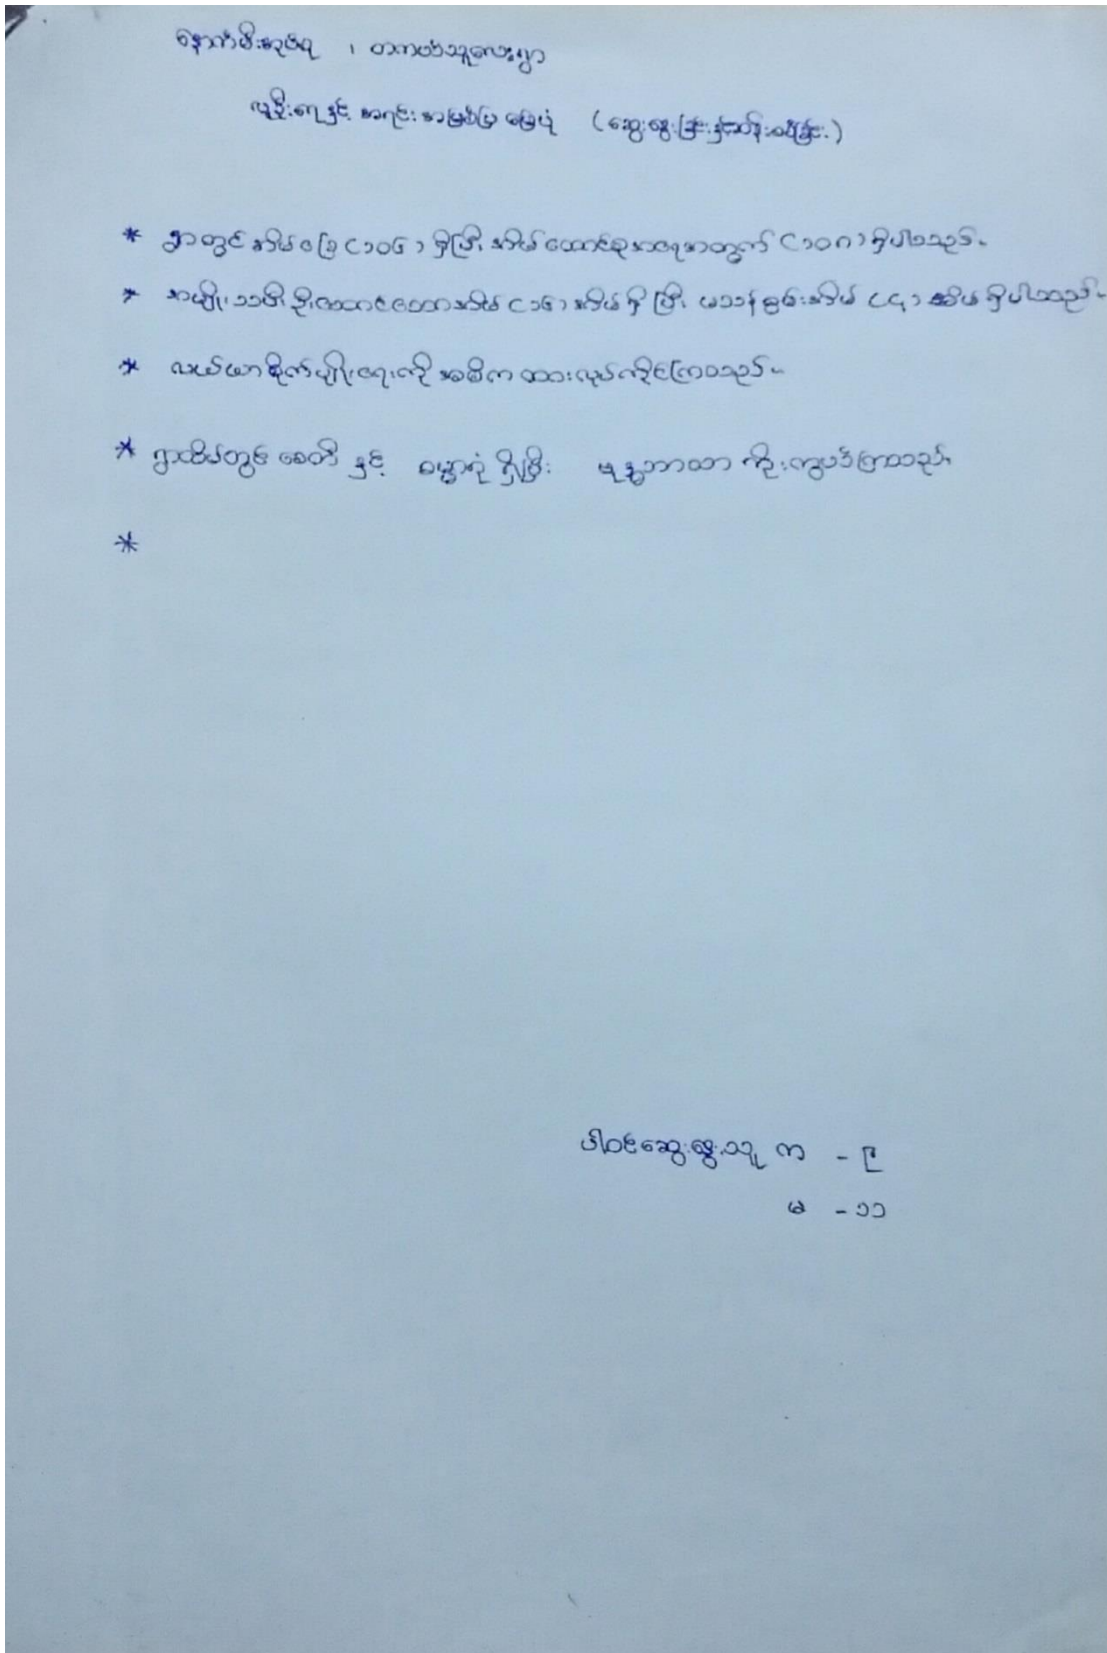 လူဦးရေနှင့် အရင်းအမြစ်ပြ မြေပုံ (ဆွေးနွေးခြင်းနှင့်ဆန်းစစ်ခြင်း)
* ရွာတွင် အိမ်ခြေ (၁၀၆) ရှိပြီး အိမ်ထောင်စုအရေအတွက် (၁၀၈) ရှိပါသည်။
* အမျိုးသမီးဦးဆောင်သောအိမ် (၁၆) အိမ်ရှိပြီး မသန်စွမ်းအိမ် (၄) အိမ် ရှိပါသည်။
* လယ်ယာစိုက်ပျိုးရေးကို အဓိကထားလုပ်ကိုင်ကြသည်။
* ရွာထိပ်တွင် စေတီ နှင့် ဓမ္မာရုံ ရှိပြီး ဗုဒ္ဓဘာသာ ကိုးကွယ်ကြသည်။
*
ပါဝင်ဆွေးနွေးသူ က - ၉
မ - ၁၁